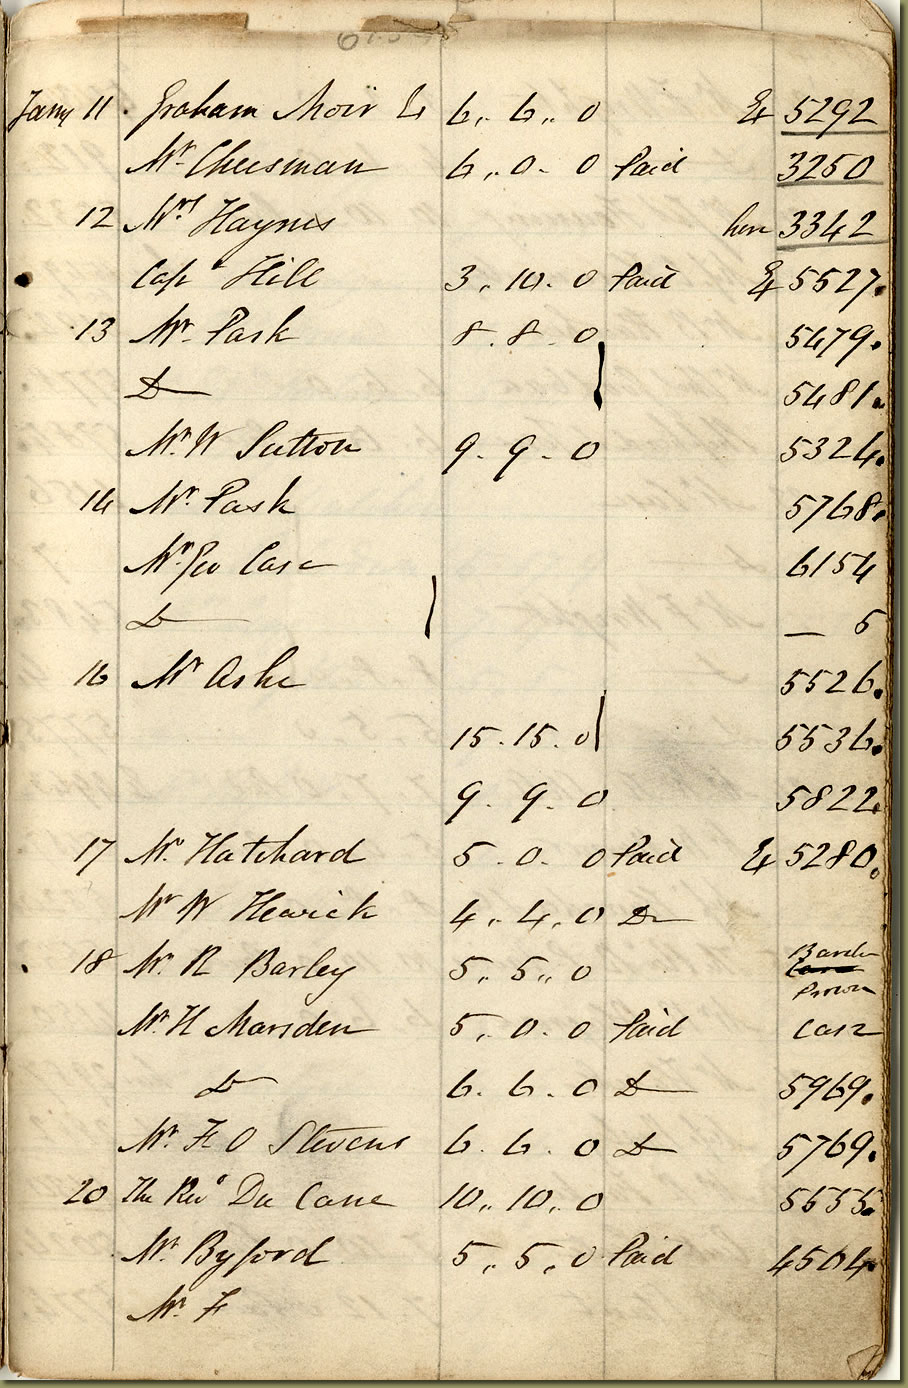 Jany 11. Graham Moir 6,, 6,, 0 Ex 5292
Mr. Cheesman 6,, 0 - 0 Paid 3250
12 Mrs Haynes 3342
Capt Hill 3,, 10. 0 Paid Ex 5527.
13 Mr. Pask 8. 8. 0 5479.
Do 5481.
Mr. W Sutton 9. 9. 0 5324.
14 Mr. Pask 5768.
Mr Geo Case 6154
Do — 5
16 Mr Ashe 5526.
15. 15. 0 5536.
9. 9. 0 5822.
17 Mr. Hatchard 5. 0. 0 Paid Ex 5280.
Mr W Hewick 4,, 4,, 0 Do
18 Mr. R Barley 5,, 5,, 0 Brown
Mr H Marsden 5,, 0. 0 Paid Case
Do 6. 6. 0 Do 5969.
Mr. F O Stevens 6. 6. 0 Do 5769.
20 The Revd Du Cane 10,, 10,, 0 5555.
Mr. Byford 5,, 5,, 0 Paid 4504.
Mr. F